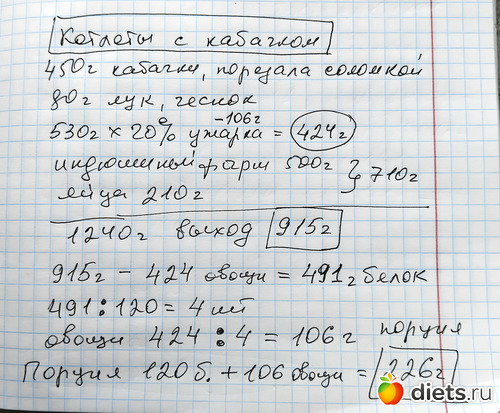 Котлеты с кабачком
450г кабачки, порезала соломкой
80г лук, чеснок
530г x 20% ужарка -106г = 424г
индюшиный фарш 500г
яйца 210г } 710г
1240г выход 915г
915г - 424 овощи = 491г белок
491 : 120 = 4 шт
овощи 424 : 4 = 106 г порция
Порция 120 б. + 106 овощи = 226г
diets.ru